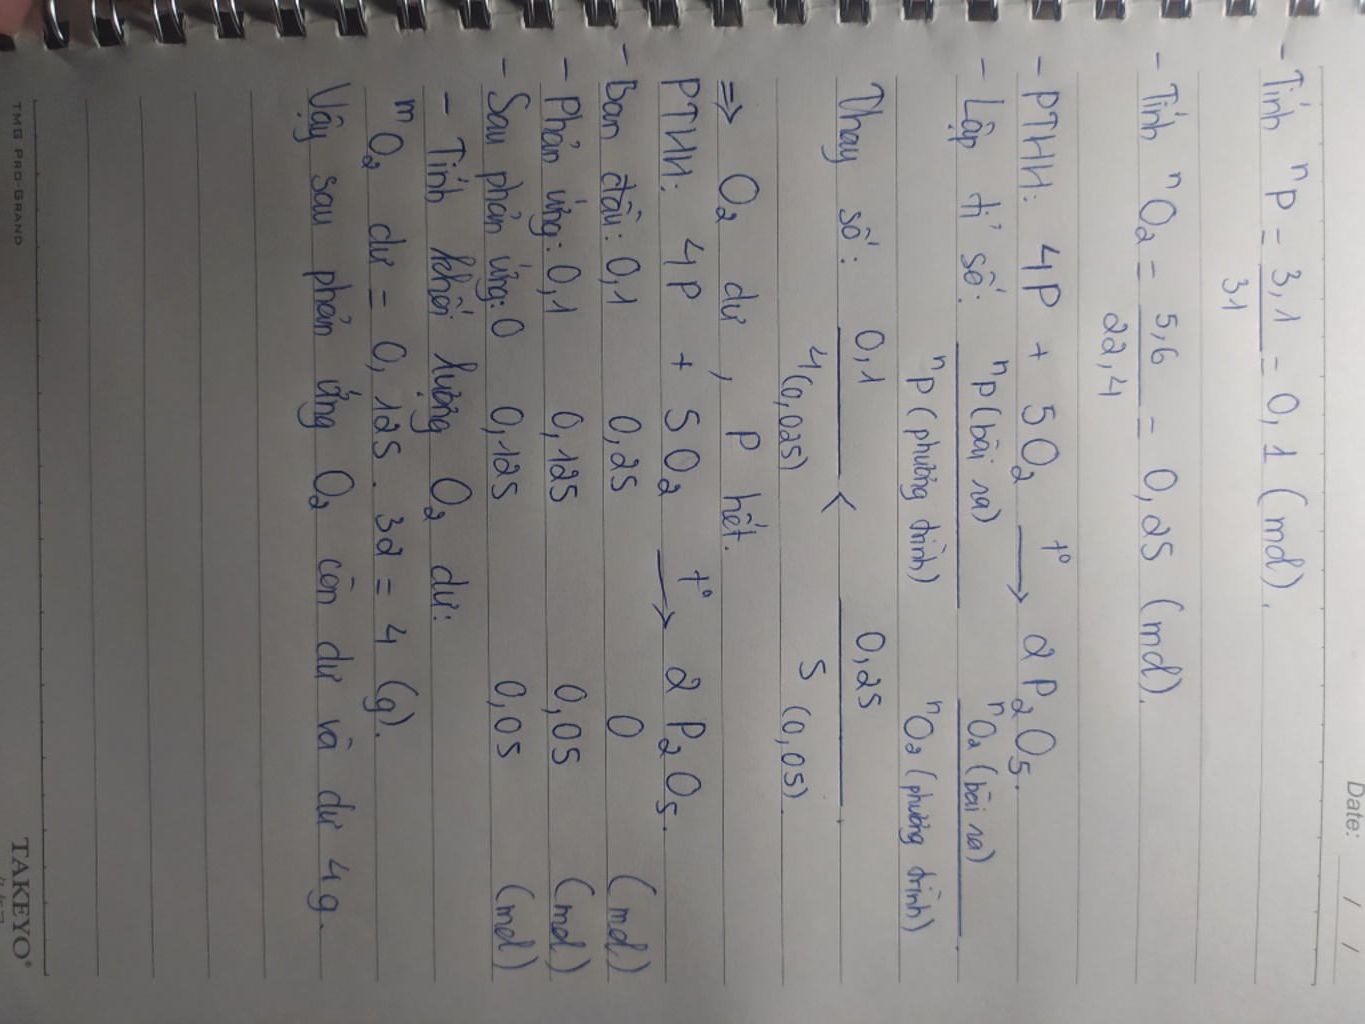 Date: / /
- Tính nP = 3,1 = 0,1 (mol).
31
- Tính nO₂ = 5,6 = 0,25 (mol).
22,4
- PTHH: 4P + 5O₂ t° → 2P₂O₅.
- Lập tỉ số: nP (bài ra) nO₂ (bài ra)
nP (phương trình) nO₂ (phương trình)
Thay số: 0,1 < 0,25
4 (0,025) 5 (0,05)
⇒ O₂ dư, P hết.
PTHH: 4P + 5O₂ t° → 2P₂O₅.
- Ban đầu: 0,1 0,25 0 (mol)
- Phản ứng: 0,1 0,125 0,05 (mol)
- Sau phản ứng: 0 0,125 0,05 (mol)
- Tính khối lượng O₂ dư:
mO₂ dư = 0,125 . 32 = 4 (g).
Vậy sau phản ứng O₂ còn dư và dư 4g.
TMG PRO-GRAND
TAKEYO®